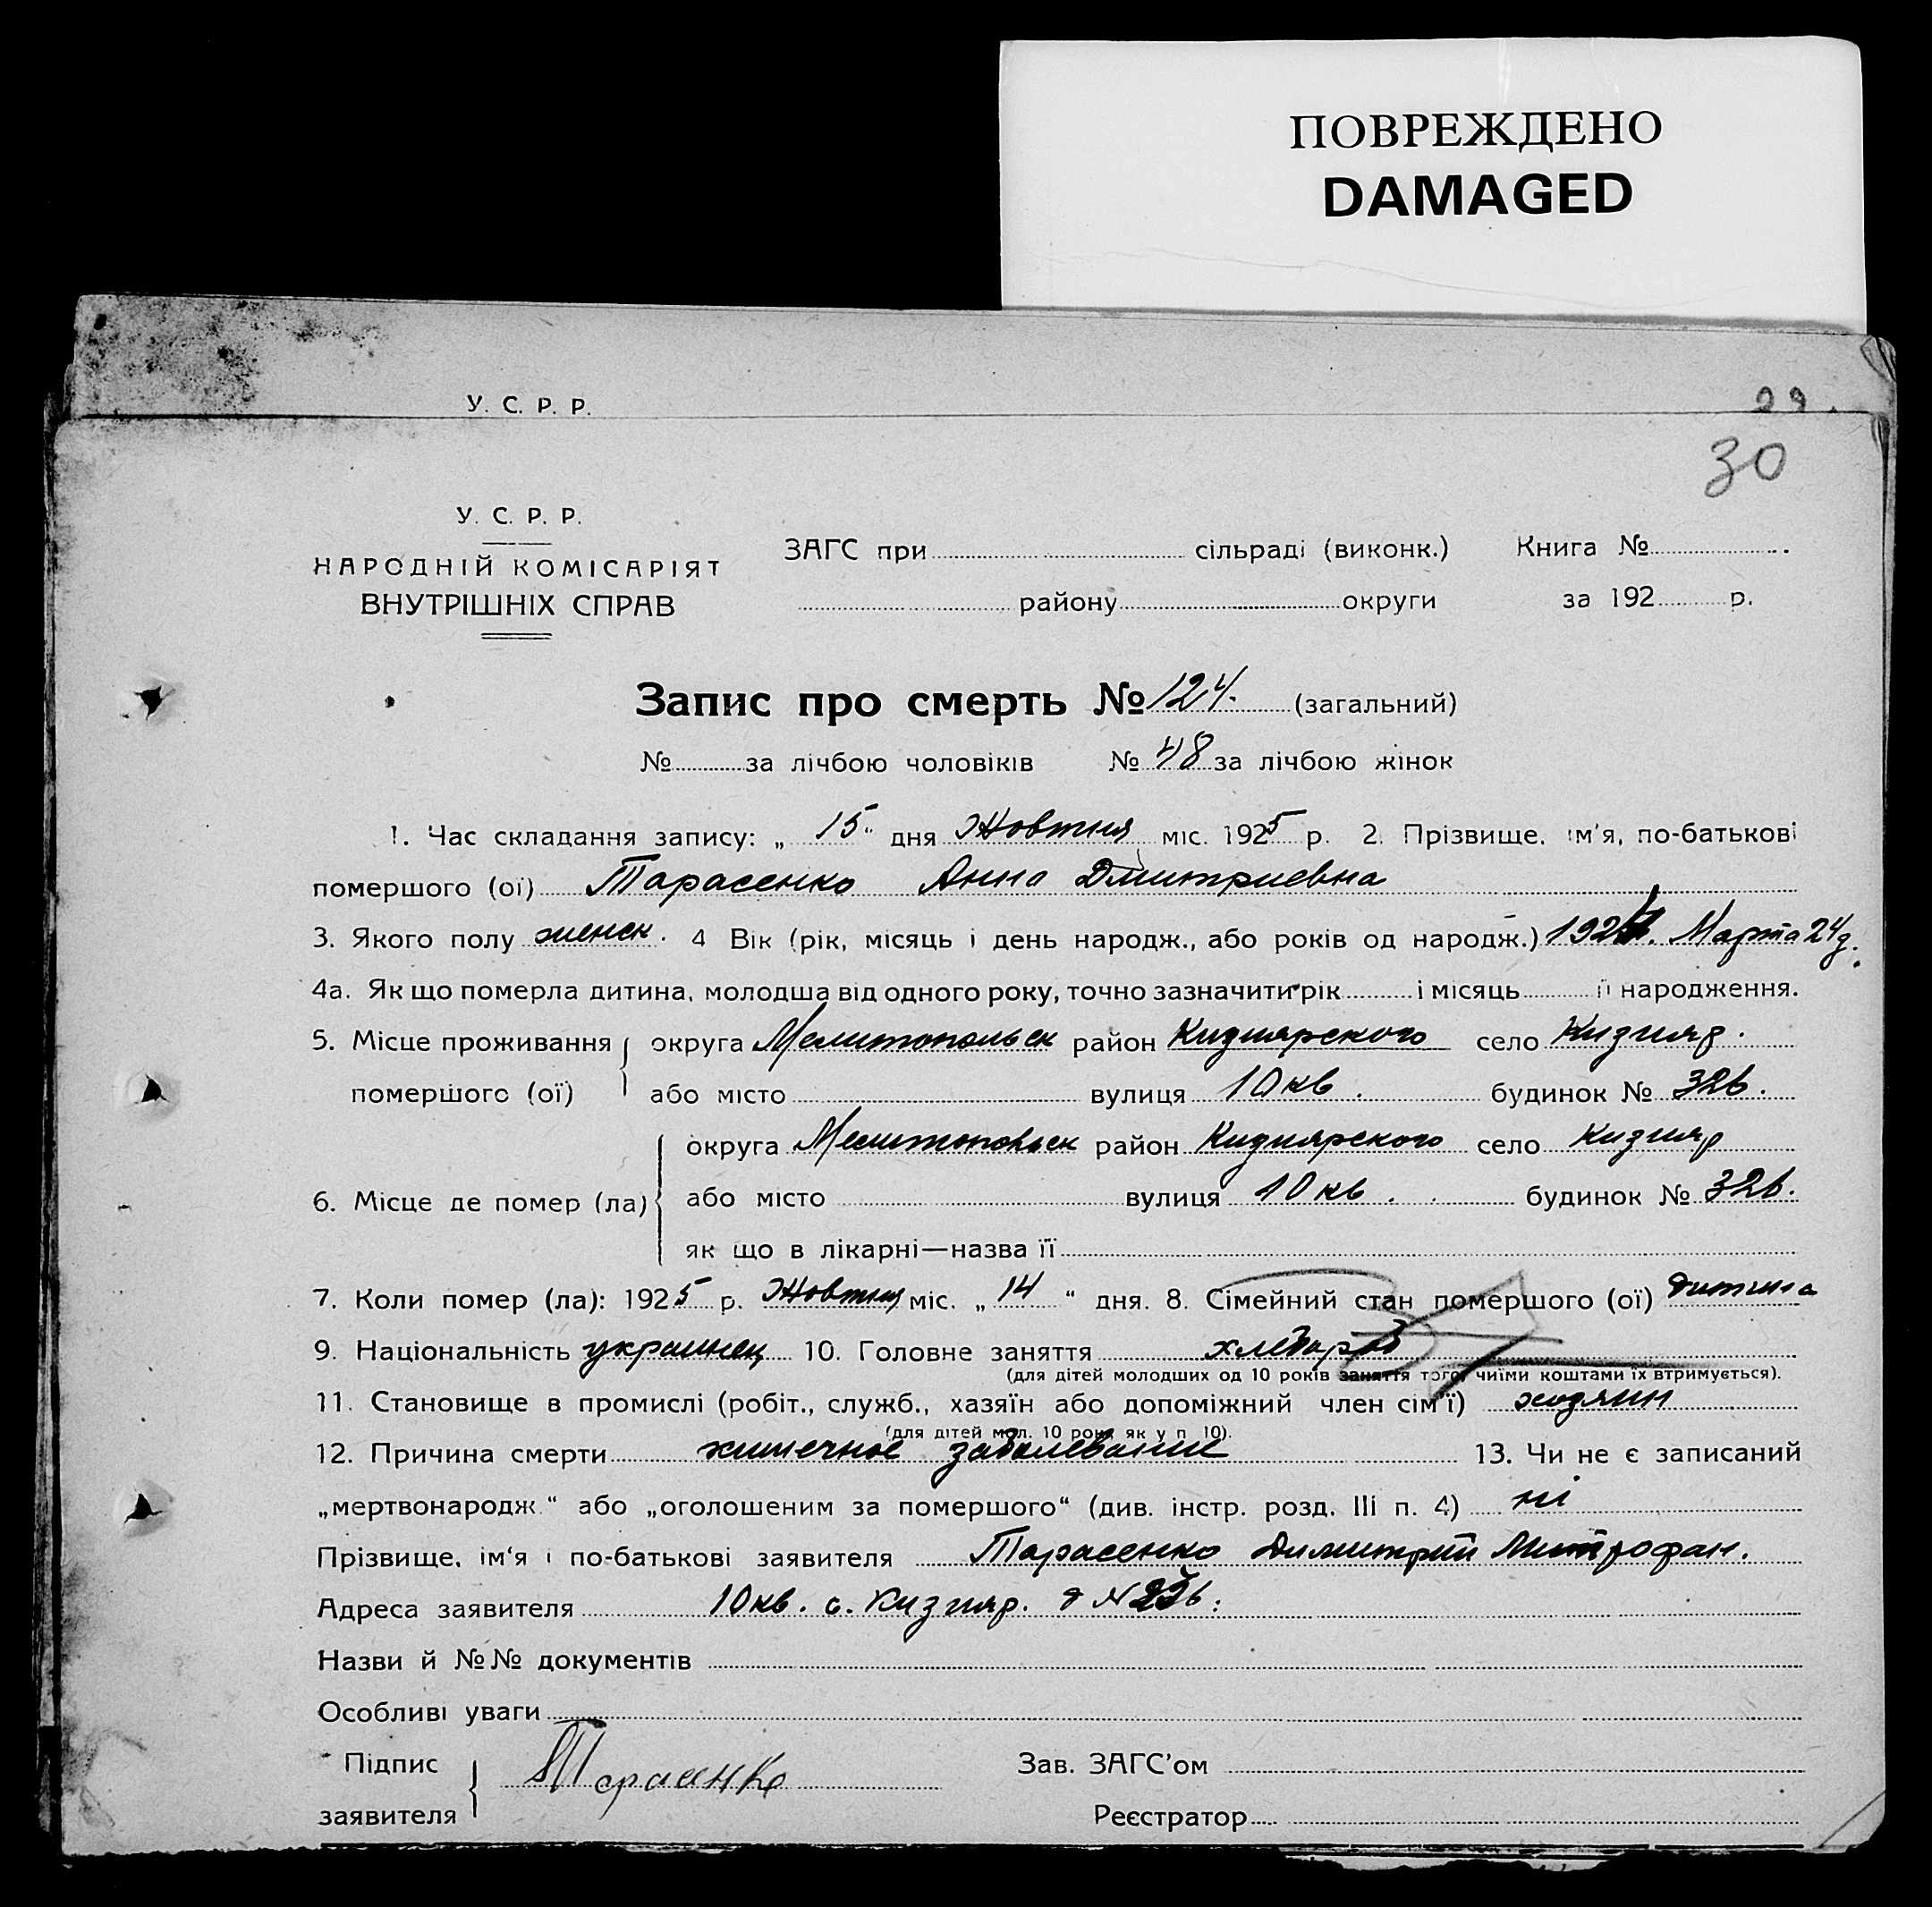 ПОВРЕЖДЕНО
DAMAGED
У. С. Р. Р.
30
У. С. Р. Р.
НАРОДНІЙ КОМІСАРІЯТ
ВНУТРІШНІХ СПРАВ
ЗАГС при сільраді (виконк.) Книга №
району округи за 192 р.
Запис про смерть № 124. (загальний)
№ за лічбою чоловіків № 48 за лічбою жінок
1. Час складання запису: „ 15 " дня Жовтня міс. 1925 р. 2. Прізвище, ім'я, по-батькові
помершого (ої) Тарасенко Анна Дмитриевна
3. Якого полу женск. 4 Вік (рік, місяць і день народж., або років од народж.) Марта 24 д.
4а. Як що померла дитина, молодша від одного року, точно зазначити рік і місяць її народження.
5. Місце проживання округа Мелитопольск район Кизиярского село Кизияр.
помершого (ої) або місто вулиця 10 кв. будинок № 326.
округа Мелитопольск район Кизиярского село Кизияр
6. Місце де помер (ла) або місто вулиця 10 кв. будинок № 326.
як що в лікарні—назва її
7. Коли помер (ла): 1925 р. Жовтня міс. „ 14 " дня. 8. Сімейний стан помершого (ої) дитина
9. Національність украинец 10. Головне заняття хлебороб
(для дітей молодших од 10 років заняття того, чиїми коштами їх втримується).
11. Становище в промислі (робіт., служб., хазяїн або допоміжний член сім'ї) хозяин
(для дітей мол. 10 років як у п 10).
12. Причина смерти кишечное заболевание 13. Чи не є записаний
„мертвонародж." або „оголошеним за помершого" (див. інстр. розд. III п. 4) ні
Прізвище, ім'я і по-батькові заявителя Тарасенко Димитрий Митрофан.
Адреса заявителя 10 кв. с. Кизияр. д №
Назви й №№ документів
Особливі уваги
Підпис Тарасенко Зав. ЗАГС'ом
заявителя Реєстратор